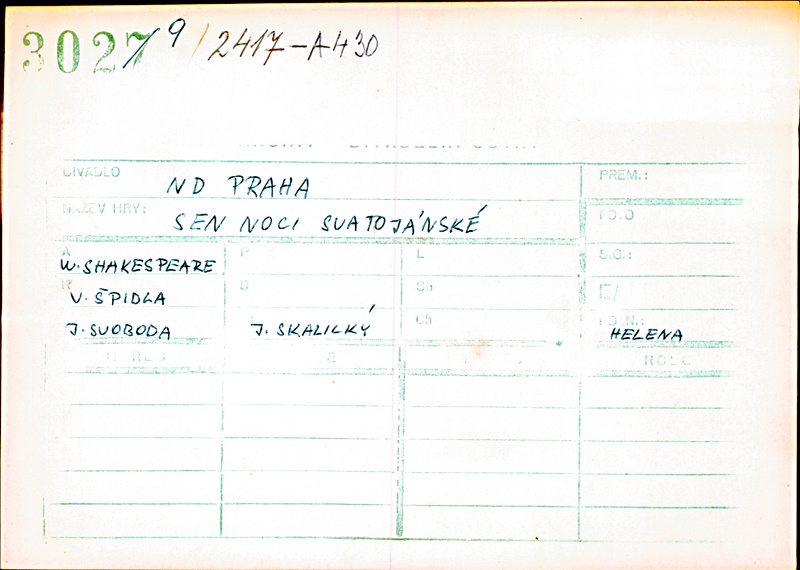 3027/9 / 2417-A430
DIVADLO
ND PRAHA
PREM.:
NÁZEV HRY:
SEN NOCI SVATOJÁNSKÉ
FOTO
A
W. SHAKESPEARE
P
L
S.G.:
R
V. ŠPIDLA
D
Sh
E/
J. SVOBODA
J. SKALICKÝ
Ch
HELENA
ROLE